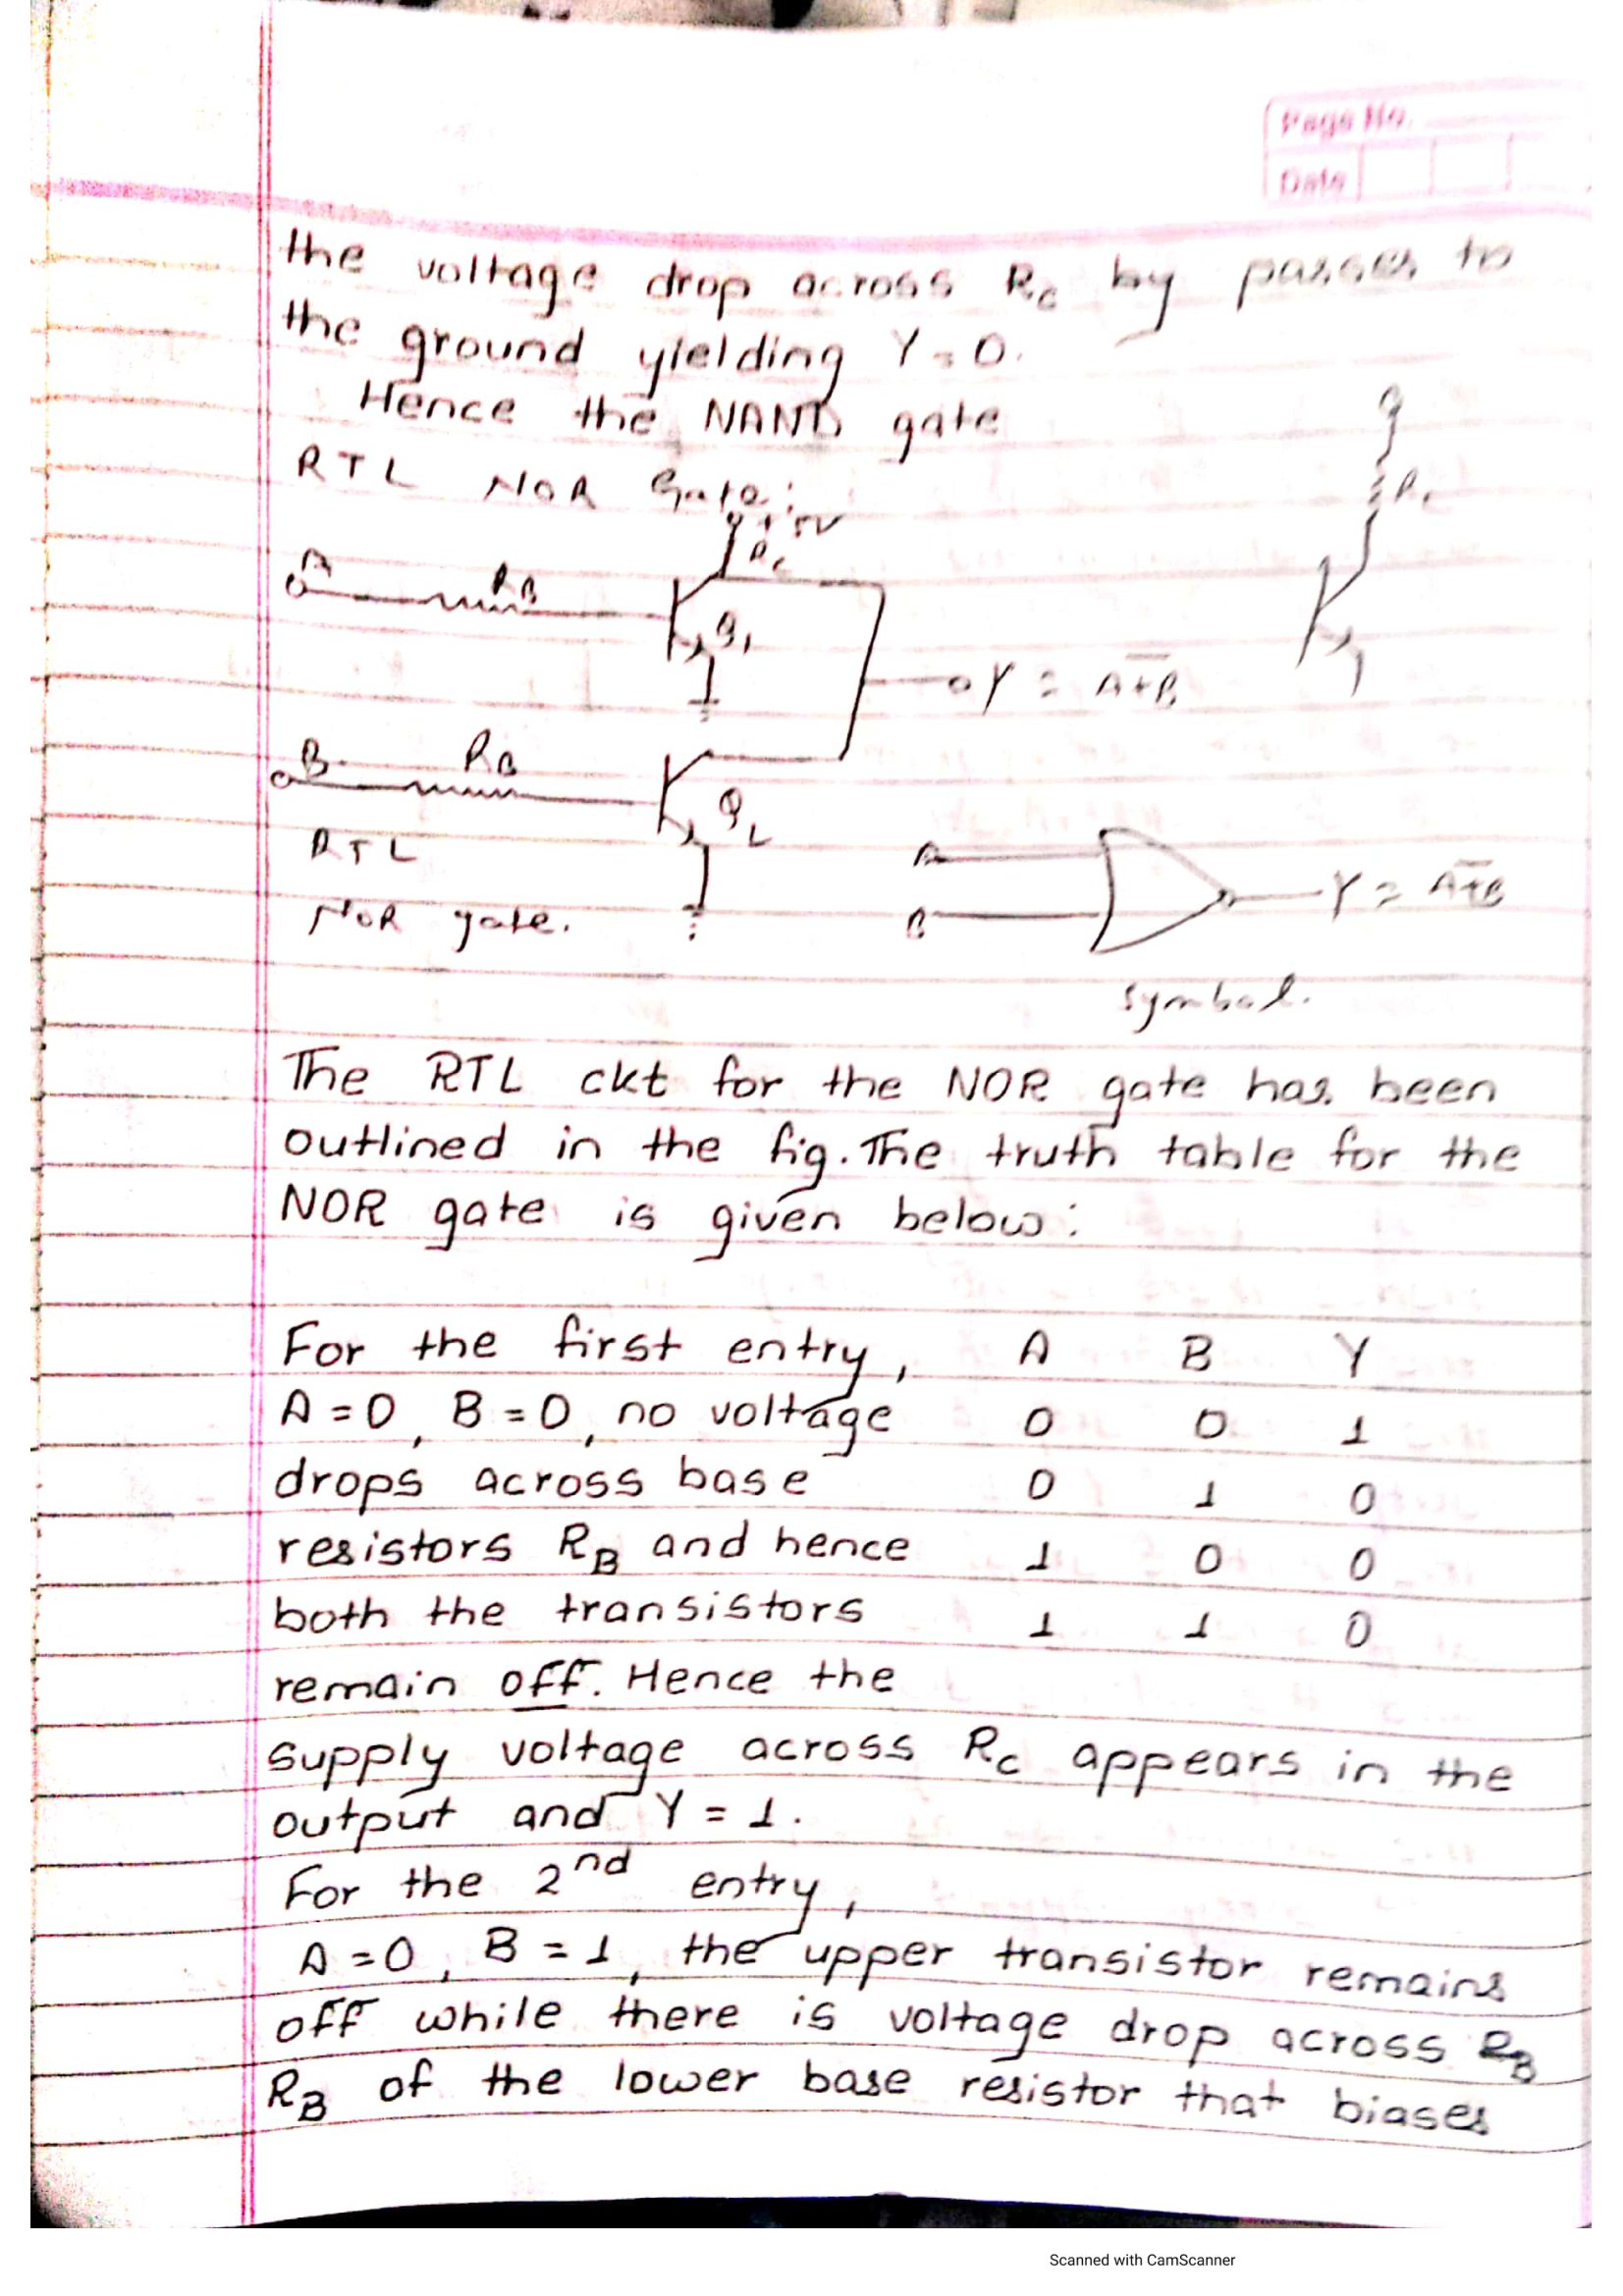 Page No.
Date
the voltage drop across Rc by passes to
the ground yielding Y = 0.
Hence the NAND gate
RTL NOR Gate:
+5V
Rc
Rc
A RB
Q1
Y = \overline{A+B}
B RB
Q2
RTL
NOR gate.
A
B
Y = \overline{A+B}
symbol.
The RTL ckt for the NOR gate has been
outlined in the fig. The truth table for the
NOR gate is given below:
For the first entry, A B Y
A = 0, B = 0, no voltage 0 0 1
drops across base 0 1 0
resistors RB and hence 1 0 0
both the transistors 1 1 0
remain off. Hence the
supply voltage across Rc appears in the
output and Y = 1.
For the 2nd entry,
A = 0, B = 1, the upper transistor remains
off while there is voltage drop across RB
RB of the lower base resistor that biases
Scanned with CamScanner